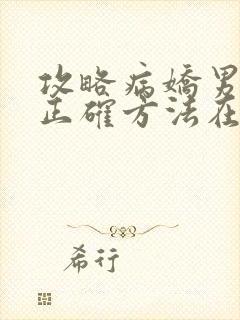 攻略病嬌男
正確方法在
希行